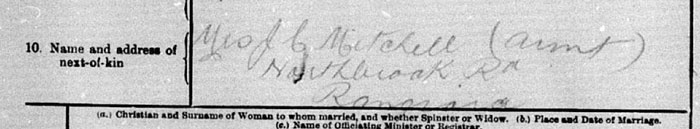 10. Name and address of next-of-kin
Mrs J C Mitchell (aunt)
Northbrook Rd
(a.) Christian and Surname of Woman to whom married, and whether Spinster or Widow. (b.) Place and Date of Marriage.
(c.) Name of Officiating Minister or Registrar.